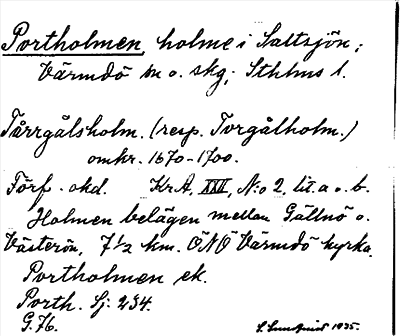 Portholmen, holme i Saltsjön;
Värmdö sn o. skg; Sthlms l.
Tårrgålsholm. (resp. Torgålholm.)
omkr. 1670-1700.
Förf. okd. Kr.A, XXII, N:o 2, lit. a o. b.
Holmen belägen mellan Gällnö o.
Västerön, 7 1/2 km. ÖNÖ Värmdö kyrka.
Portholmen ek.
Porth. Sj: 234.
G.76.
S. Lundqvist 1935.